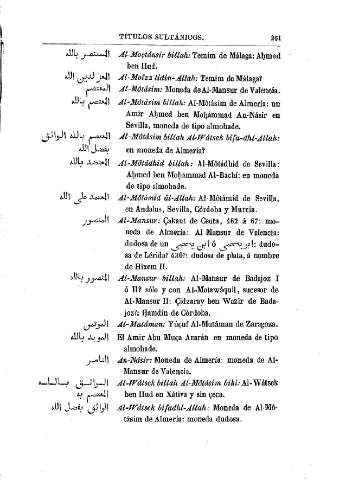 TÍTULOS SULTÁNICOS. 261
المستنصر بالله Al-Moçtánsir billah: Temim de Málaga: Aḥmed
ben Hud.
المعز لدين الله Al-Moïzz lidin-Allah: Temim de Málaga?
المعتصم Al-Mótásim: Moneda de Al-Mansur de Valencia.
المعتصم بالله Al-Mótásim billah: Al-Mótásim de Almería: un
Amir Aḥmed ben Moḥammad An-Násir en
Sevilla, moneda de tipo almohade.
المعتصم بالله الواثق Al-Mótásim billah Al-Wátsek bifa-dhl-Allah:
بفضل الله en moneda de Almería?
المعتضد بالله Al-Mótádhid billah: Al-Mótádhid de Sevilla:
Aḥmed ben Moḥammad Al-Bachí: en moneda
de tipo almohade.
المعتمد على الله Al-Mótámid âl-Allah: Al-Mótámid de Sevilla,
en Andalus, Sevilla, Córdoba y Murcia.
المنصور Al-Mansur: Çakzut de Ceuta, 462 á 67: mo-
neda de Almería: Al Mansur de Valencia:
dudosa de un ابن يحيى ó ابن يحيى: dudo-
sa de Lérida? 430?: dudosa de plata, á nombre
de Hixem II.
المنصور بالله Al-Mansur billah: Al-Mansur de Badajoz I
ó II? sólo y con Al-Motawáquil, sucesor de
Al-Mansur II: Çidzaray ben Wazir de Bada-
joz?: Ḥamdin de Córdoba.
المؤتمن Al-Mutámen: Yúçuf Al-Mutáman de Zaragoza.
المويد بالله El Amir Abu Muça Azarán en moneda de tipo
almohade.
الناصر An-Násir: Moneda de Almería: moneda de Al-
Mansur de Valencia.
الواثق بالله Al-Wátsek billah Al-Mótásim bihi: Al-Wátsek
المعتصم به ben Hud en Xátiva y sin çeca.
الواثق بفضل الله Al-Wátsek bifadhl-Allah: Moneda de Al-Mó-
tásim de Almería: moneda dudosa.